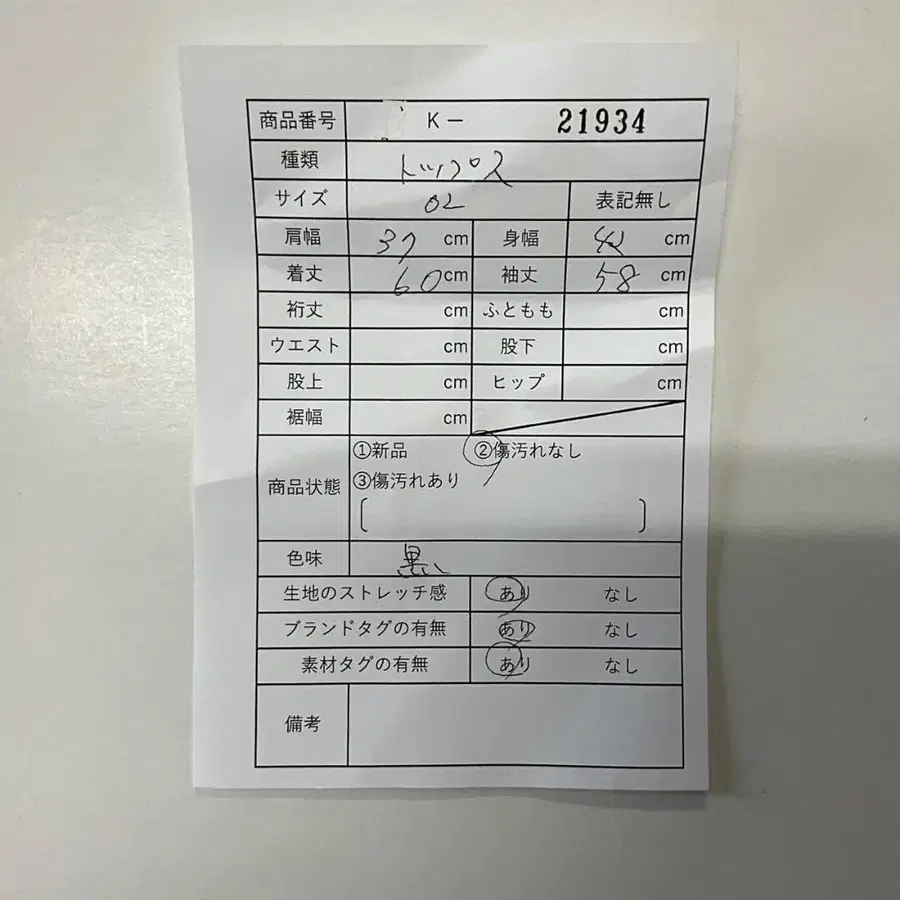 商品番号 K- 21934
種類 トップス
サイズ 02 表記無し
肩幅 37 cm 身幅 cm
着丈 60 cm 袖丈 58 cm
裄丈 cm ふともも cm
ウエスト cm 股下 cm
股上 cm ヒップ cm
裾幅 cm
①新品 ②傷汚れなし
商品状態 ③傷汚れあり
[ ]
色味 黒
生地のストレッチ感 あり なし
ブランドタグの有無 あり なし
素材タグの有無 あり なし
備考